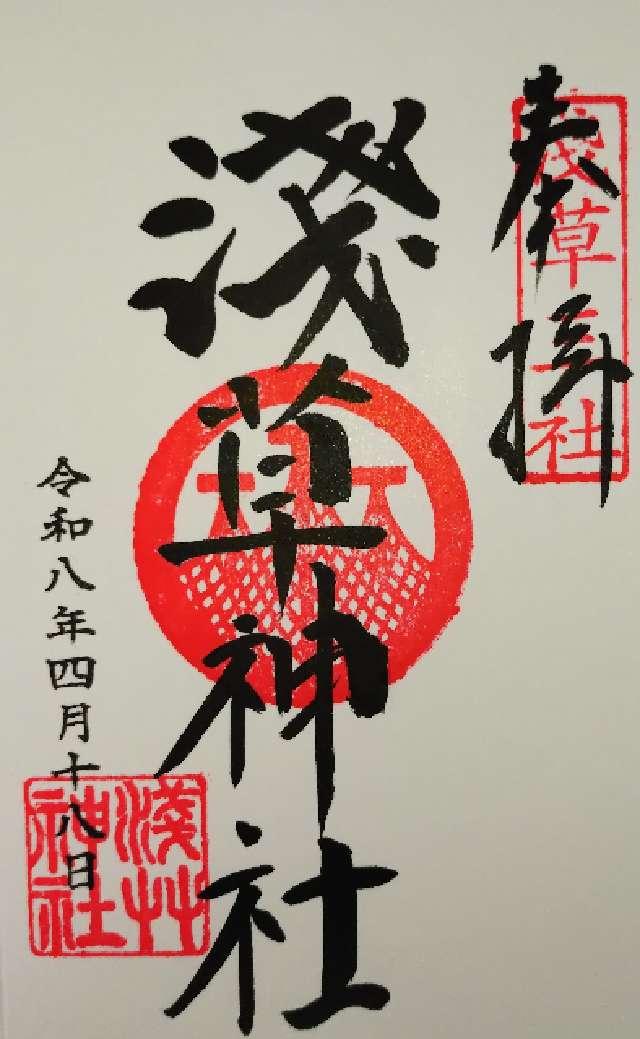 奉拝
淺草三社
淺草神社
令和八年四月十八日
淺艸神社